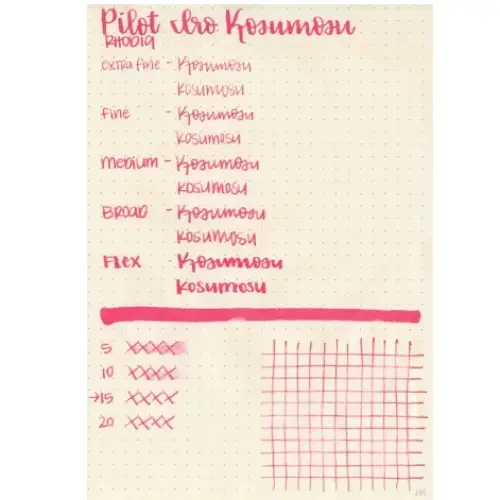 Pilot Iro Kosumosu
RHODIA
extra fine - Kosumosu
Kosumosu
fine - Kosumosu
Kosumosu
Medium - Kosumosu
Kosumosu
BROAD - Kosumosu
Kosumosu
FLEX - Kosumosu
Kosumosu
5 XXXX
10 XXXX
→15 XXXX
20 XXXX